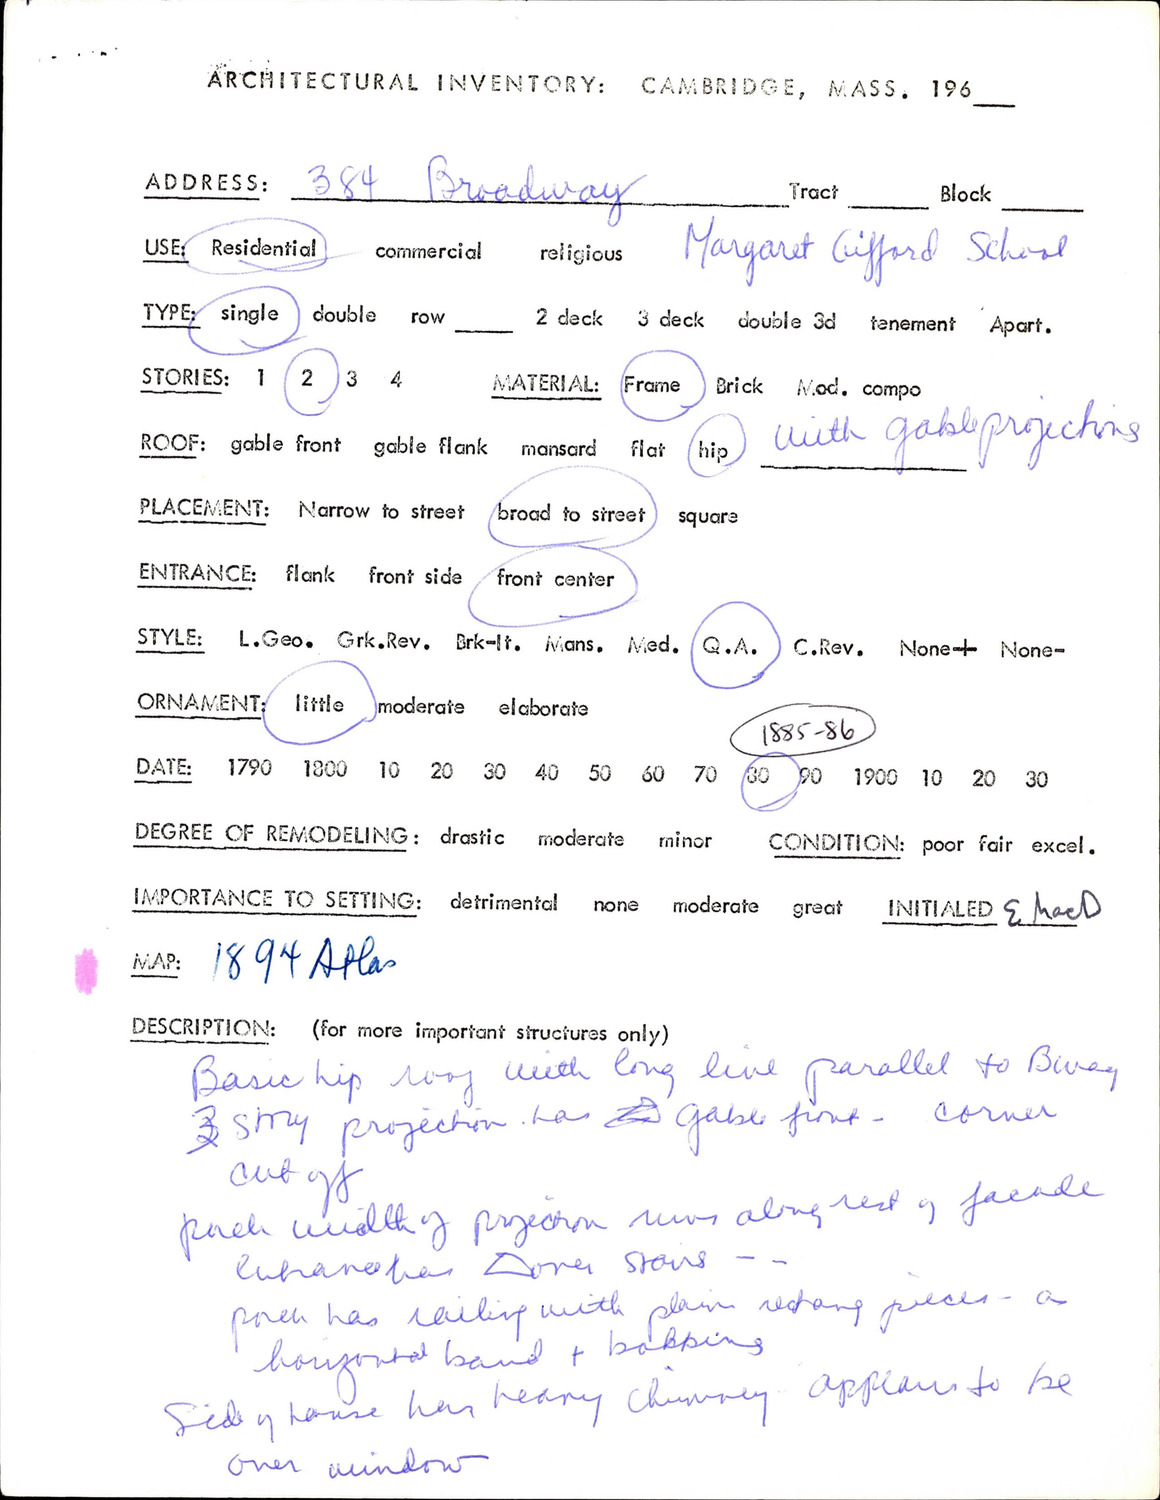 ARCHITECTURAL INVENTORY: CAMBRIDGE, MASS. 196__
ADDRESS: 384 Broadway Tract ____ Block ____
USE: Residential commercial religious Margaret Gifford School
TYPE: single double row ____ 2 deck 3 deck double 3d tenement Apart.
STORIES: 1 2 3 4 MATERIAL: Frame Brick Mod. compo
ROOF: gable front gable flank mansard flat hip with gable projections
PLACEMENT: Narrow to street broad to street square
ENTRANCE: flank front side front center
STYLE: L.Geo. Grk.Rev. Brk-It. Mans. Med. Q.A. C.Rev. None+ None-
ORNAMENT: little moderate elaborate
1885-86
DATE: 1790 1800 10 20 30 40 50 60 70 80 90 1900 10 20 30
DEGREE OF REMODELING: drastic moderate minor CONDITION: poor fair excel.
IMPORTANCE TO SETTING: detrimental none moderate great INITIALED E MacD
MAP: 1894 Atlas
DESCRIPTION: (for more important structures only)
Basic hip roof with long line parallel to Bway
3 story projection has gable front - corner
cut off
porch width of projection runs along rest of facade
Entrance has over stairs --
porch has railing with plain rectang pieces - a
horizontal band +
Side of house has heavy chimney appears to be
over window